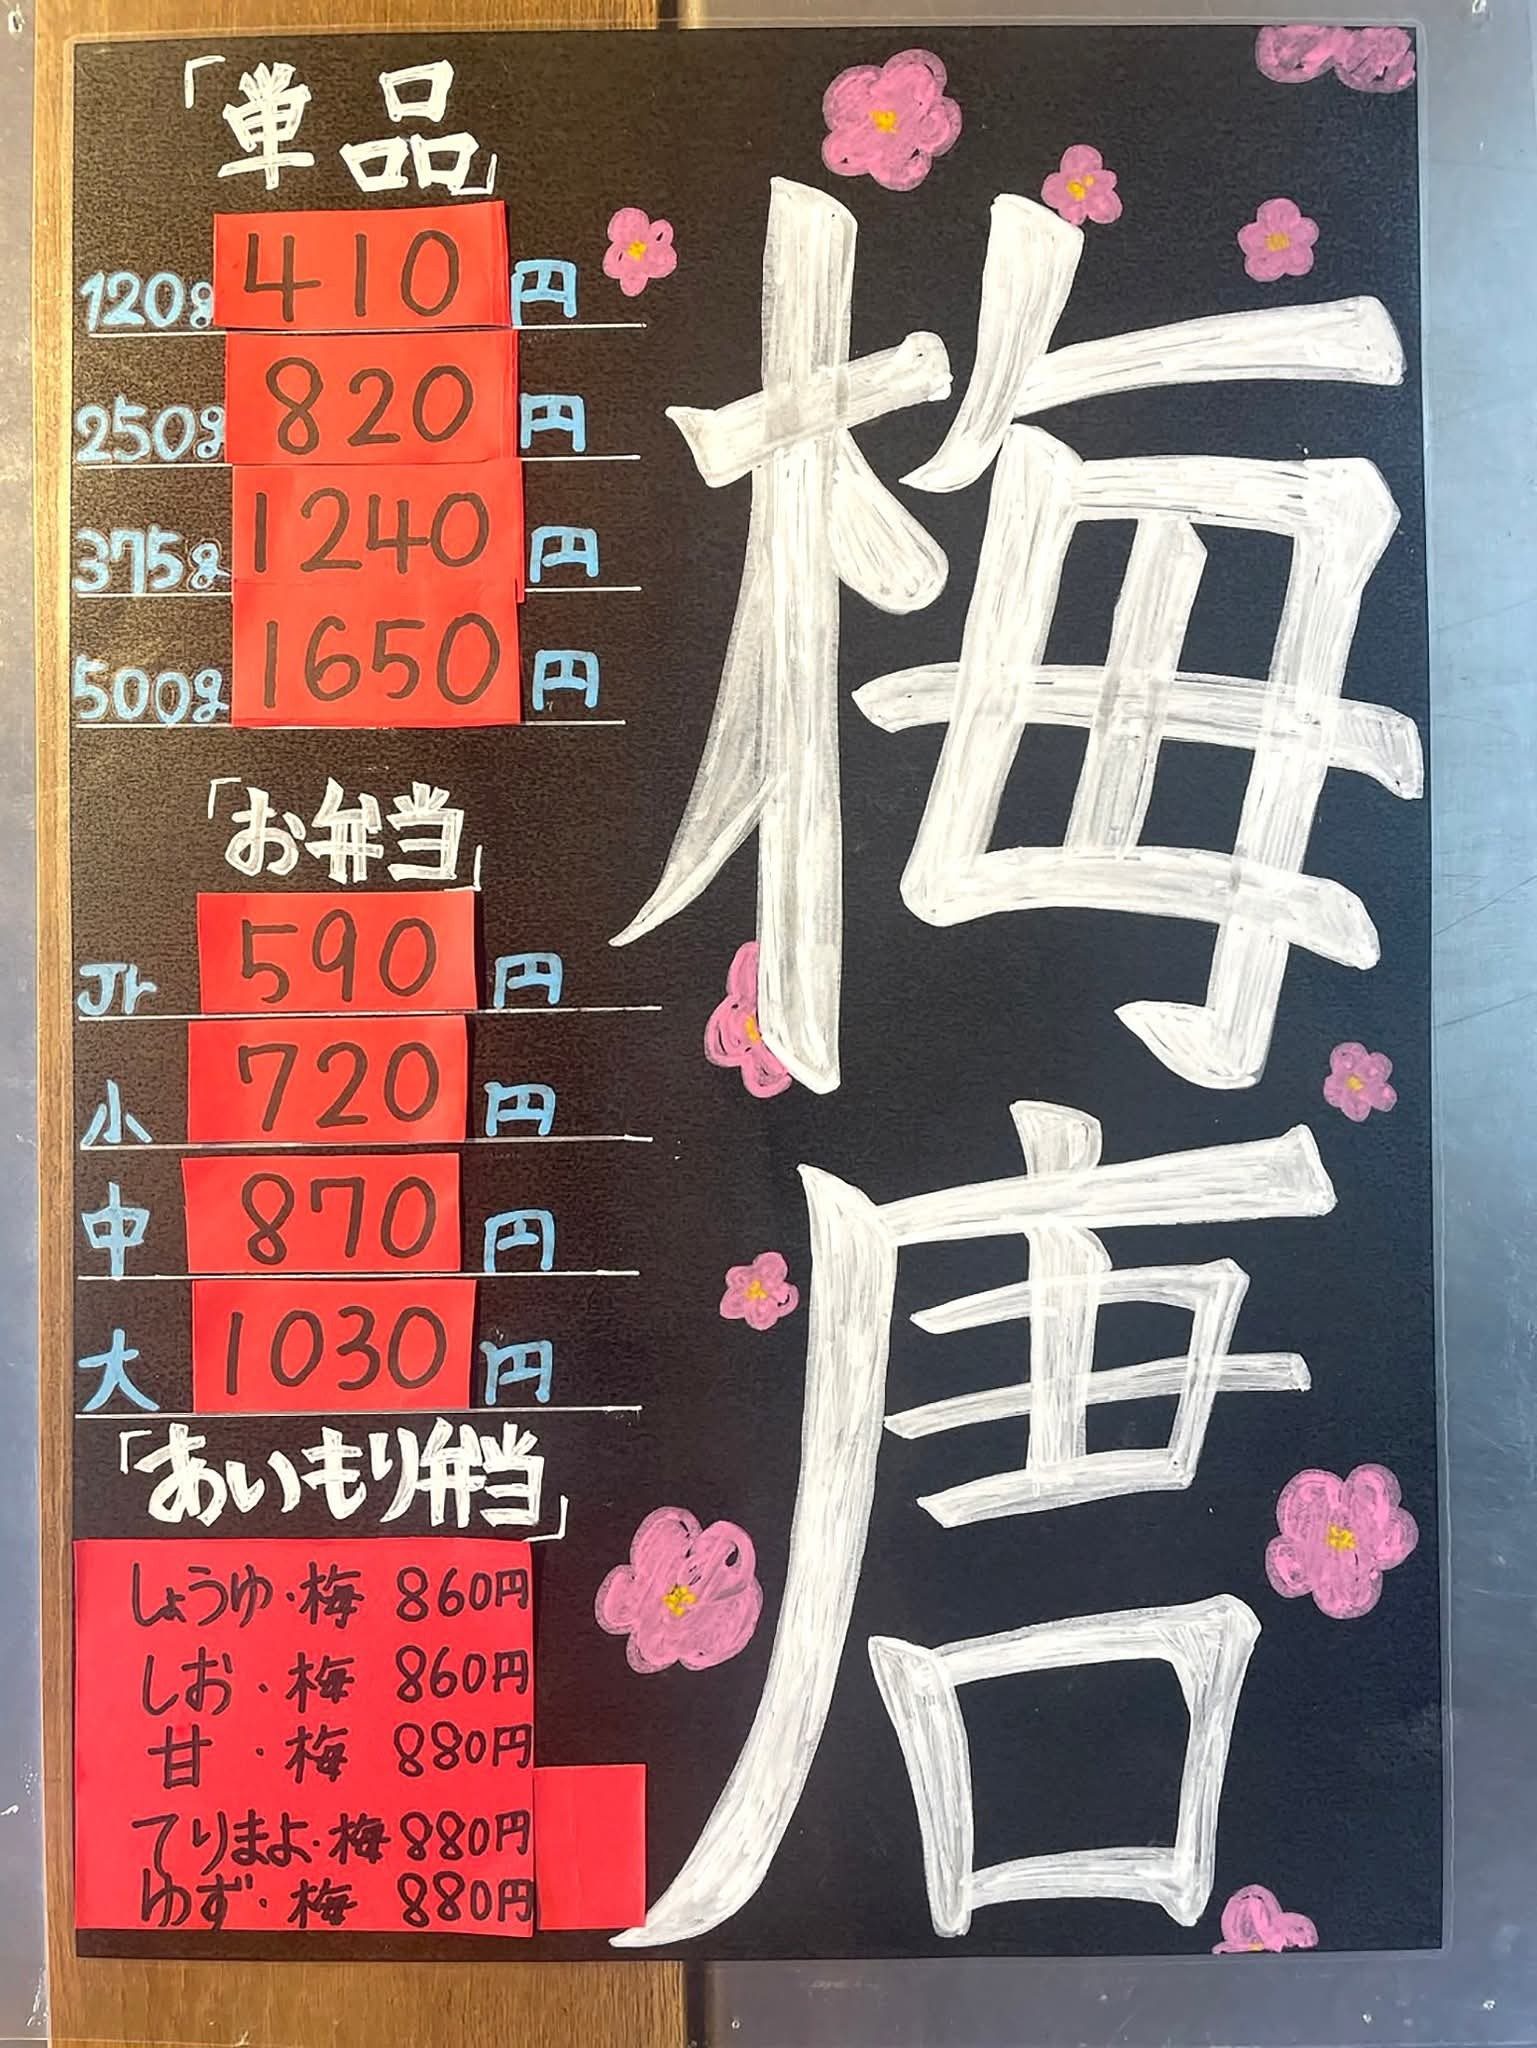 梅唐
「単品」
120g 410円
250g 820円
375g 1240円
500g 1650円
「お弁当」
Jr 590円
小 720円
中 870円
大 1030円
「あいもり弁当」
しょうゆ・梅 860円
しお・梅 860円
甘・梅 880円
てりまよ・梅 880円
ゆず・梅 880円